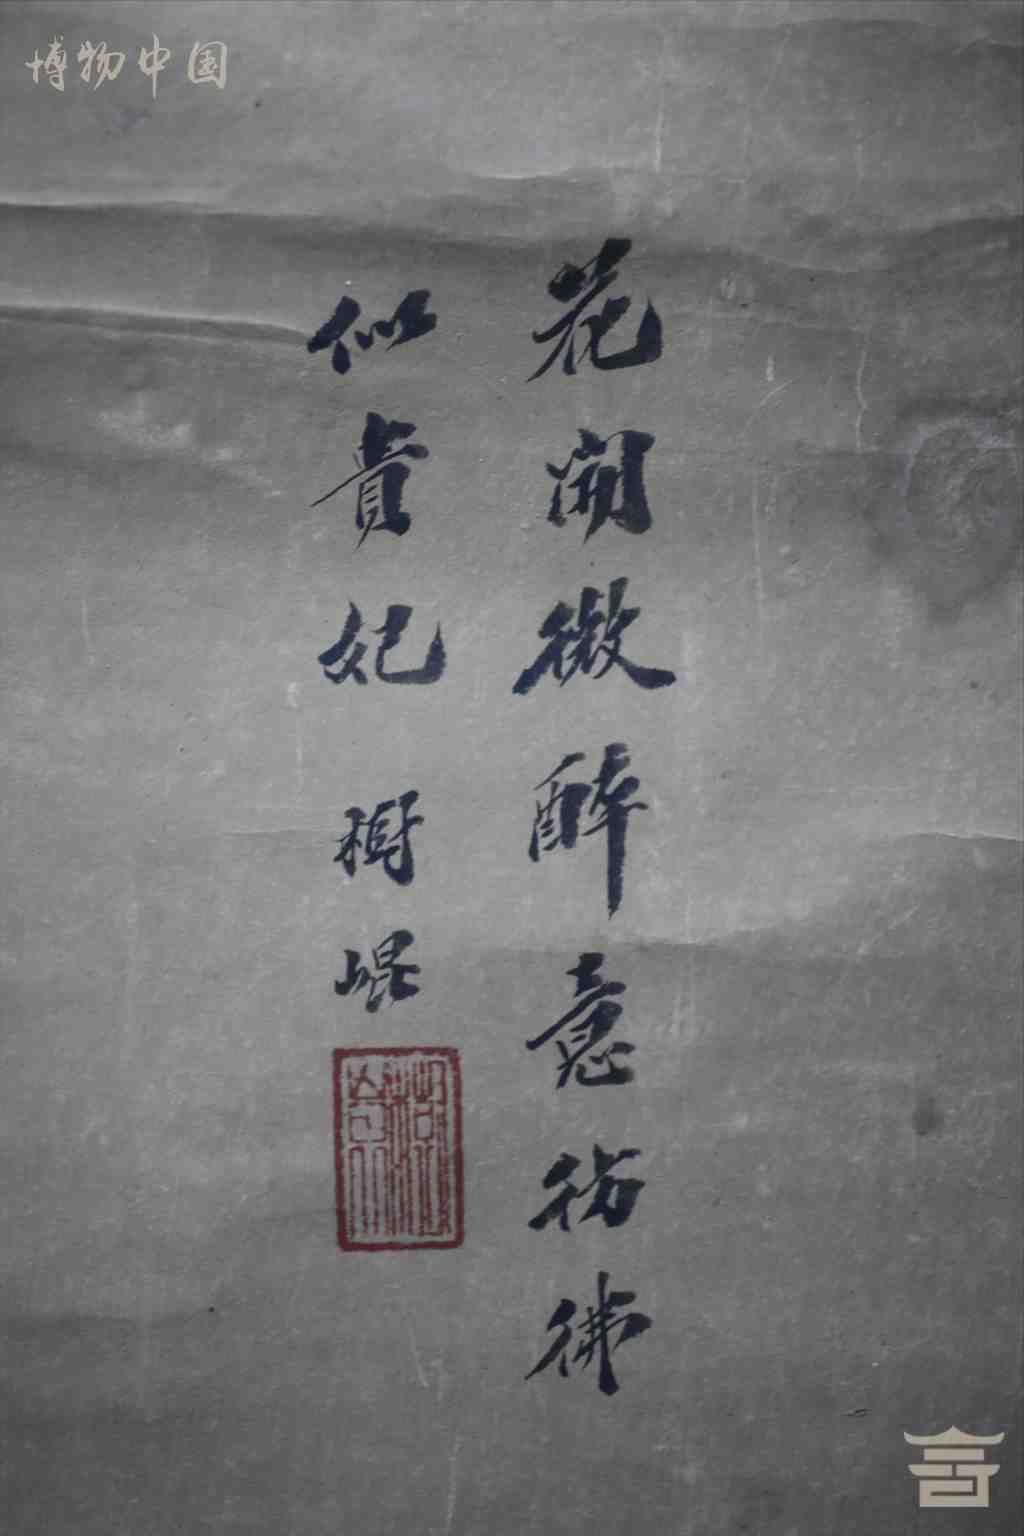 博物中国
花開微醉意彷彿
似貴妃 樹崐